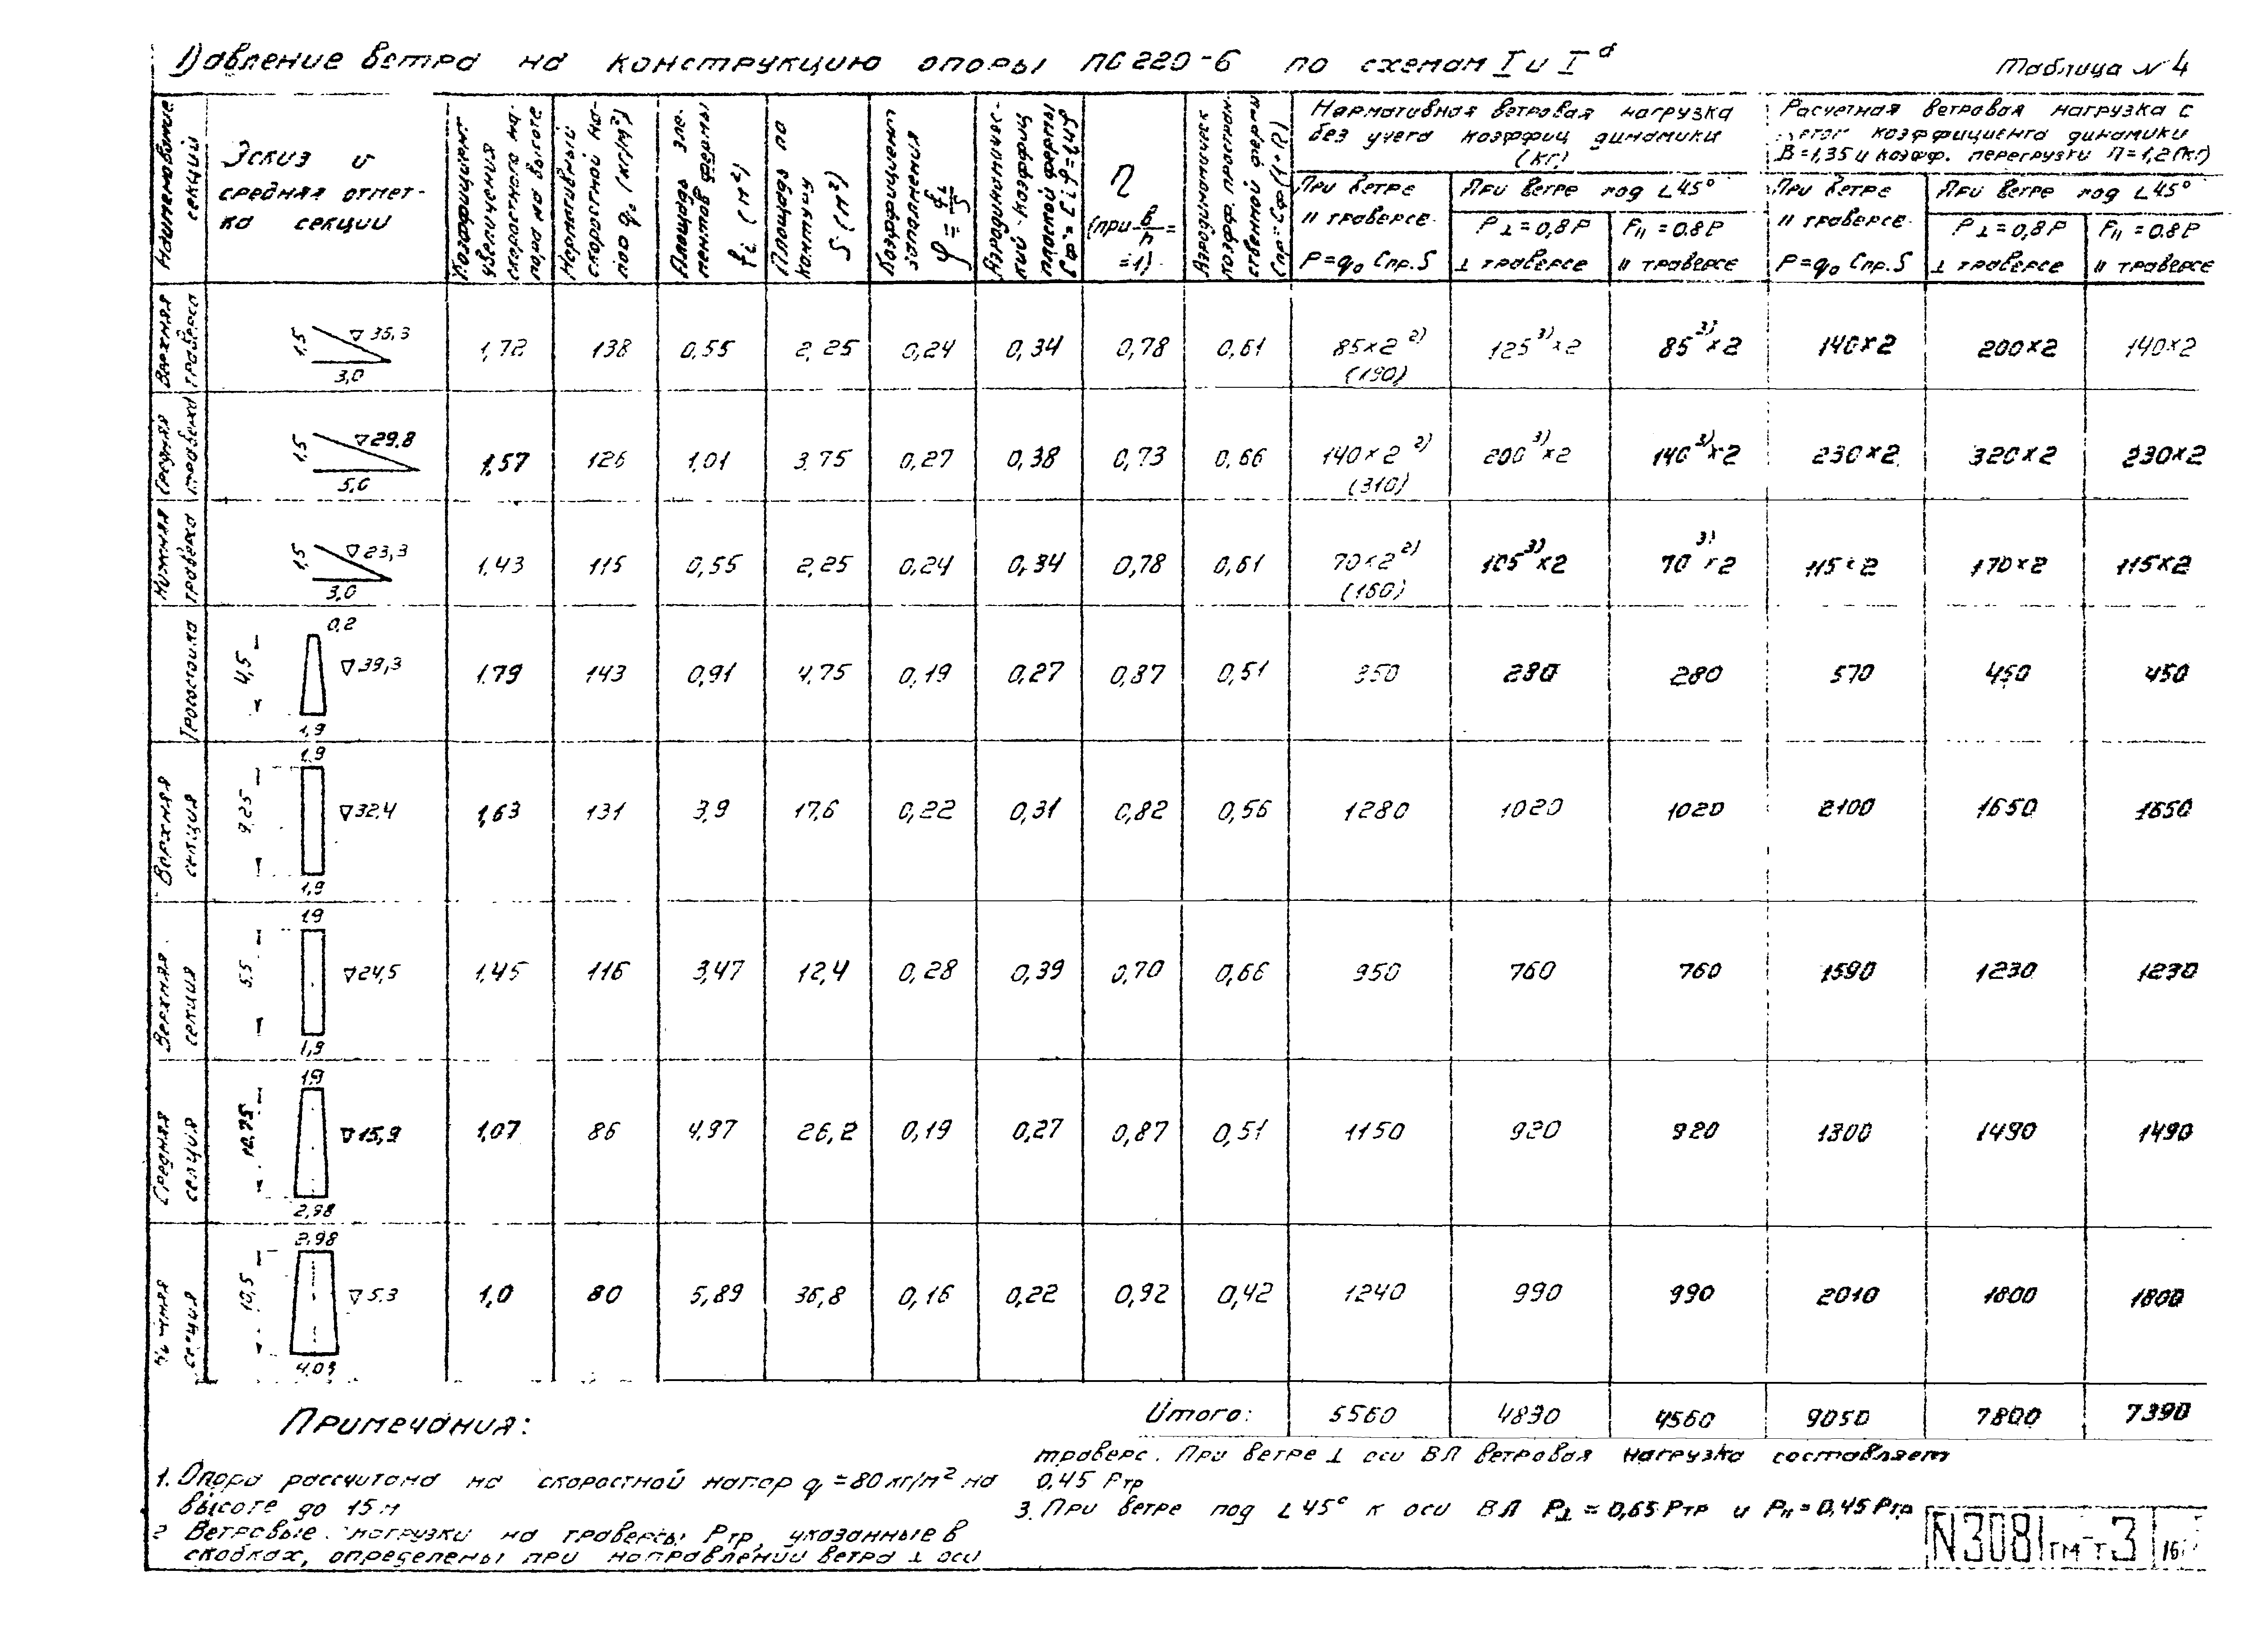 Давление ветра на конструкцию опоры ПС 220-6 по схемам I и Iа
Таблица N 4
Наименование секции
Эскиз и средняя отметка секции
Коэффициент увеличения скоростного напора по высоте
Нормативный скоростной напор q₀ (кг/м²)
Площадь элементов фермы fi (м²)
Площадь по контуру S (м²)
Коэффициент заполнения φ = f/S
η (при b/h = =1)
Нормативная ветровая нагрузка без учета коэффиц динамики (кг)
Расчетная ветровая нагрузка с коэффициента динамики B = 1,35 и коэфф. перегрузки п = 1,2 (кг)
При ветре // траверсе. P = q₀ Cпр. S
При ветре под ∠ 45°
P⊥ = 0,8P ⊥ траверсе
P// = 0.8P // траверсе
При ветре // траверсе. P = q₀ Cпр. S
При ветре под ∠ 45°
P⊥ = 0,8P ⊥ траверсе
P// = 0.8P // траверсе
Верхняя траверса 1,5 3,0 ▽ 35,3 1,72 138 0,55 2,25 0,24 0,34 0,78 0,61 85×2 2) (190) 125 3) ×2 85 3) ×2 140×2 200×2 140×2
Средняя траверса 1,5 5,0 ▽ 29,8 1,57 126 1,01 3,75 0,27 0,38 0,73 0,66 140×2 2) (310) 200 3) ×2 140 3) ×2 230×2 320×2 230×2
Нижняя траверса 1,5 3,0 ▽ 23,3 1,43 115 0,55 2,25 0,24 0,34 0,78 0,61 70×2 2) (160) 105 3) ×2 70 3) ×2 115×2 170×2 115×2
4,5 0,2 1,9 ▽ 39,3 1.79 143 0,91 4,75 0,19 0,27 0,87 0,51 350 280 280 570 450 450
Верхняя секция 9,25 1.9 1,9 ▽ 32,4 1,63 131 3,9 17,6 0,22 0,31 0,82 0,56 1280 1020 1020 2100 1650 1650
Верхняя секция 5,5 1.9 1,9 ▽ 24,5 1,45 116 3,47 12,4 0,28 0,39 0,70 0,66 950 760 760 1590 1230 1230
Средняя секция 10,75 1.9 2,98 ▽ 15,9 1,07 86 4,97 26,2 0,19 0,27 0,87 0,51 1150 920 920 1800 1490 1490
секция 10,5 2.98 4.03 ▽ 5.3 1,0 80 5,89 36,8 0,16 0,22 0,92 0,42 1240 990 990 2010 1800 1800
Итого: 5560 4830 4560 9050 7800 7390
Примечания:
1. Опора рассчитана на скоростной напор q = 80 кг/м² на
высоте до 15 м
2 Ветровые нагрузки на траверсы Pтр, указанные в
скобках, определены при направлении ветра ⊥ оси
траверс. При ветре ⊥ оси ВЛ ветровая нагрузка составляет
0,45 Pтр
3. При ветре под ∠ 45° к оси ВЛ P⊥ = 0,65 Pтр и P// = 0,45 Pтр
N3081тм-т3 16